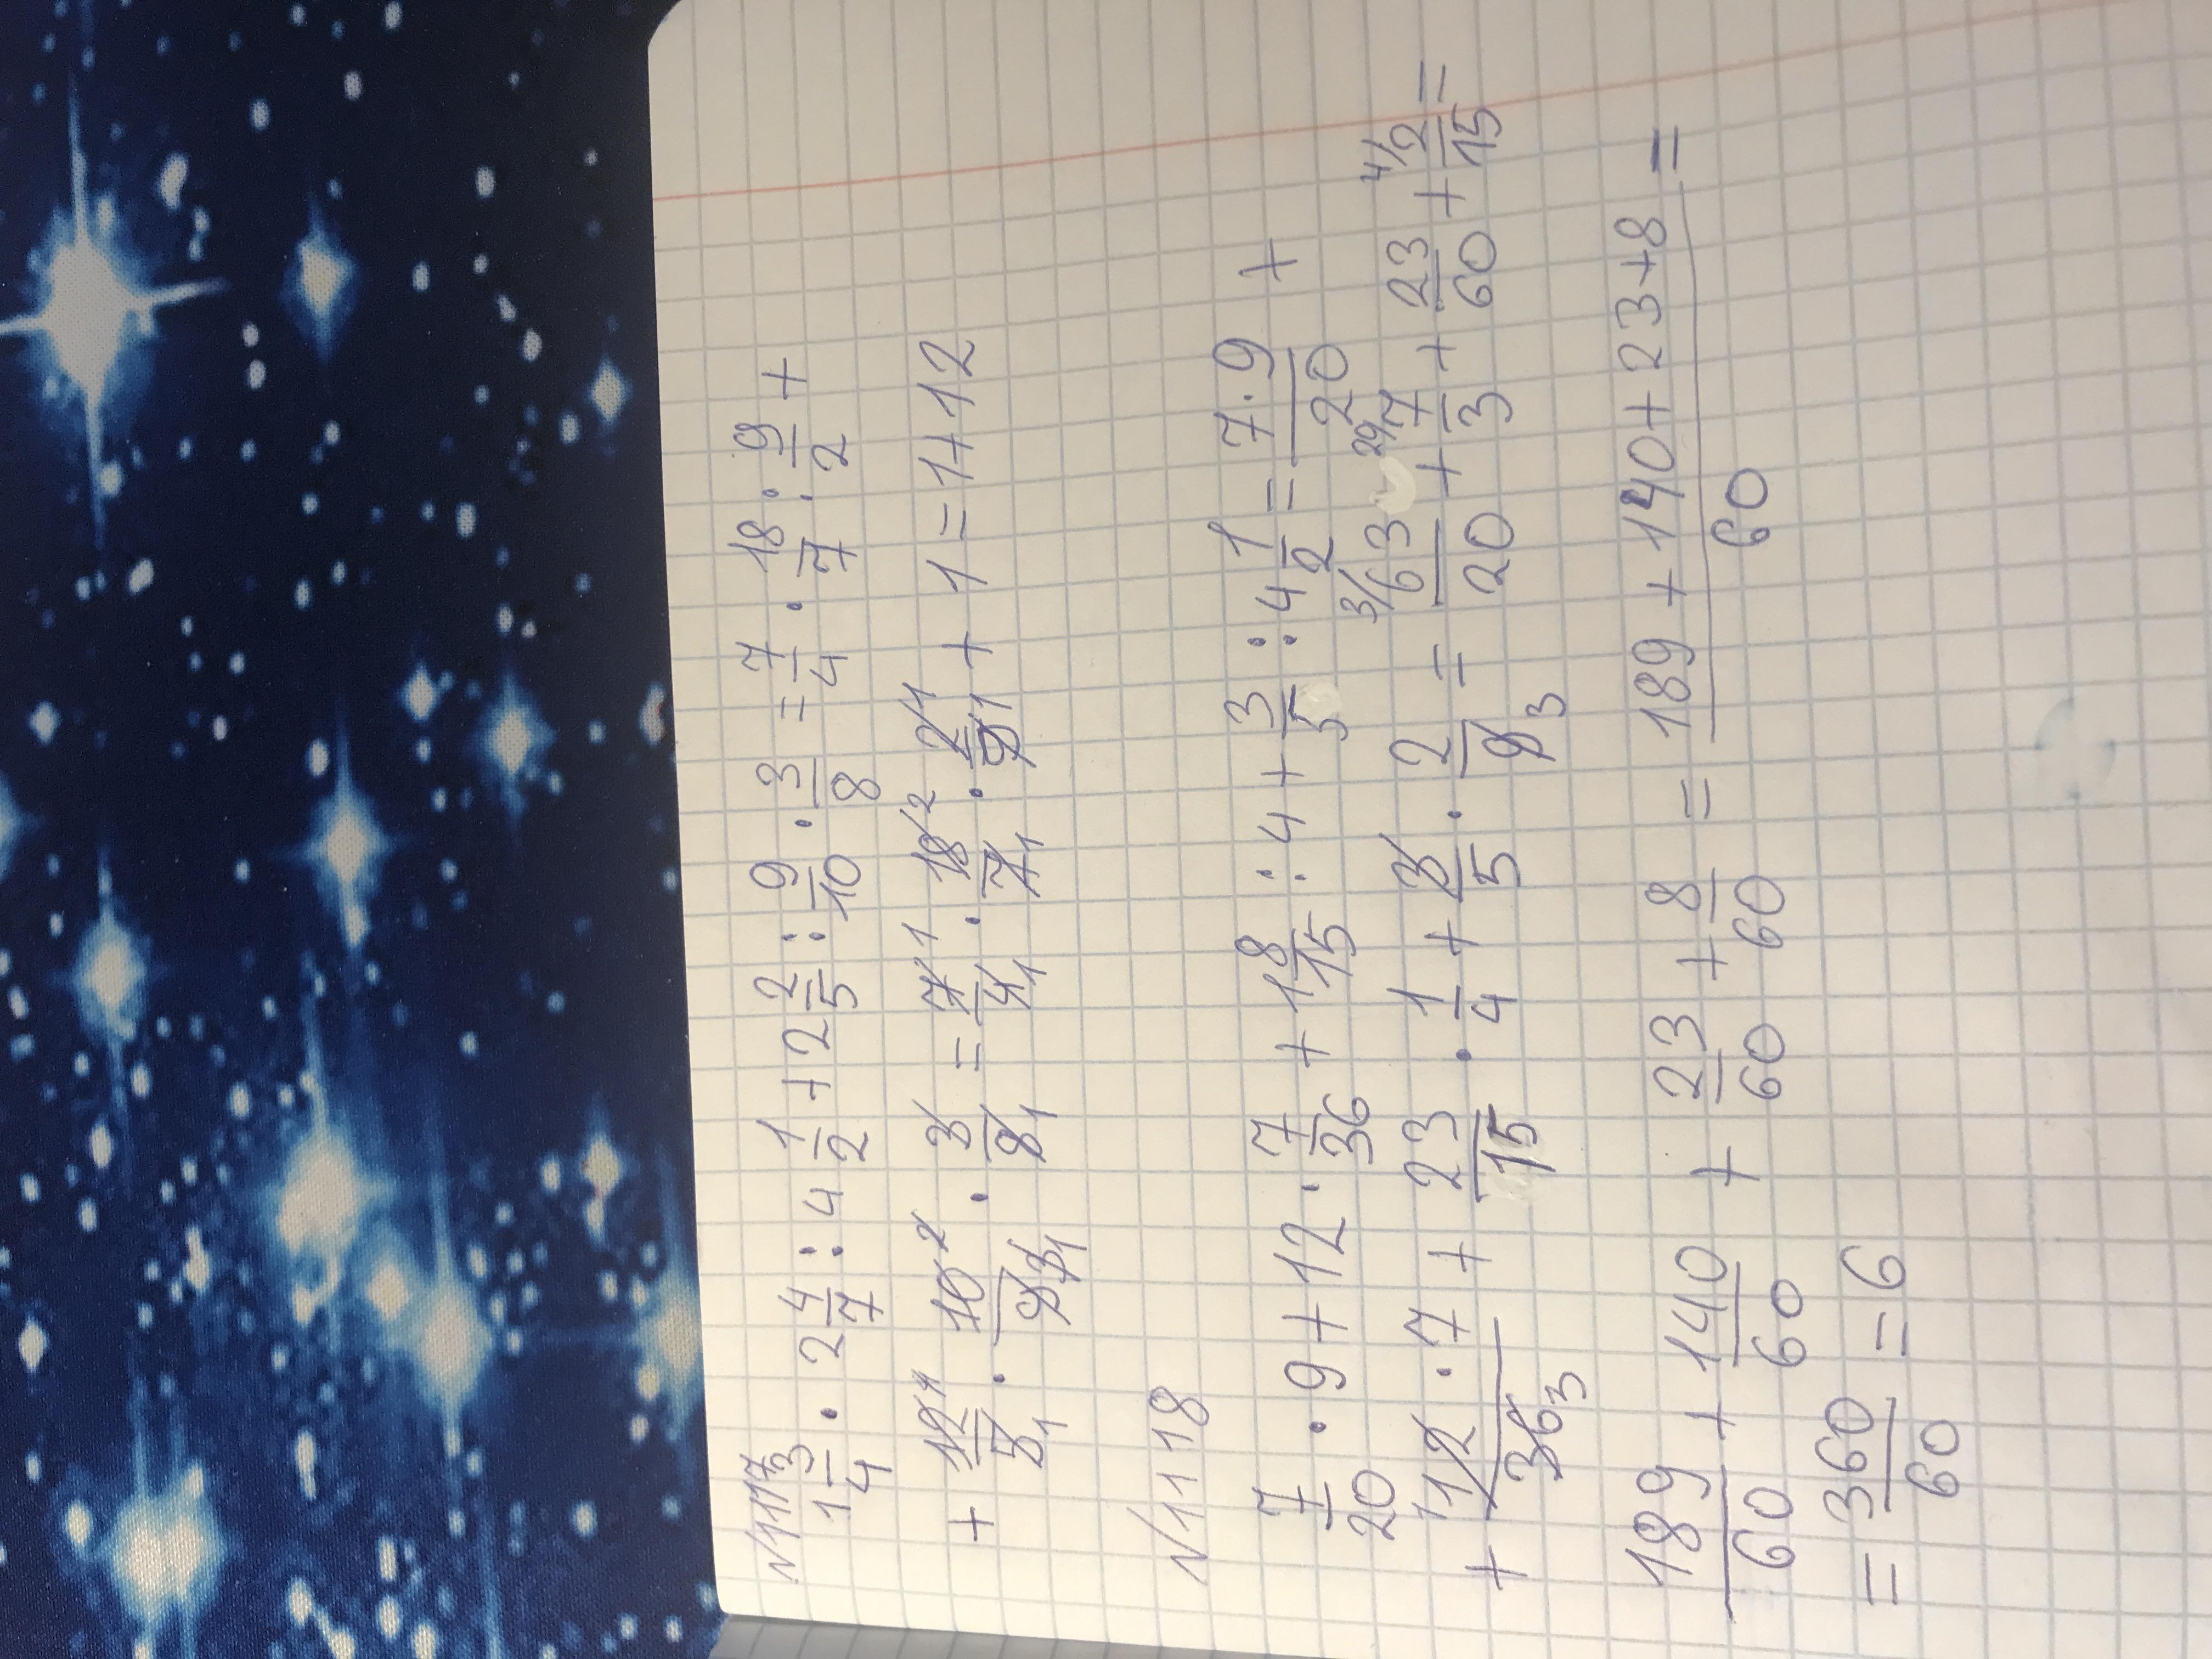 №1117
1 3/4 · 2 4/7 : 4 1/2 + 2 2/5 : 9/10 · 3/8 = 7/4 · 18/7 : 9/2 +
+ 12 1/5 1 · 10 2/9 3 1 · 3/8 1 = 7 1/4 1 · 18 2/7 1 · 2 1/9 1 + 1 = 1 + 12
№1118
7/20 · 9 + 12 · 7/36 + 1 8/15 : 4 + 3/5 : 4 1/2 = 7·9/20 +
+ 1 12 · 7/36 3 + 23/15 · 1/4 + 3/5 · 2/9 3 = 3/ 63/20 + 20/ 7/3 + 23/60 + 4/ 2/15 =
189/60 + 140/60 + 23/60 + 8/60 = 189 + 140 + 23 + 8/60 =
= 360/60 = 6